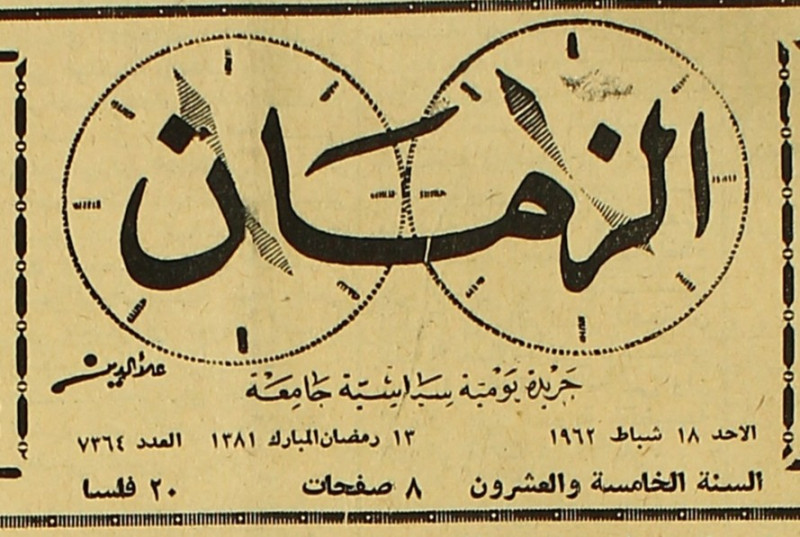 الزمان
علاءالدين
جَرِيدة يَوْميّة سِيَاسِيّة جَامِعَة
الاحد ١٨ شباط ١٩٦٢ ١٣ رمضان المبارك ١٣٨١ العدد ٧٣٦٤
السنة الخامسة والعشرون ٨ صفحات ٢٠ فلسا